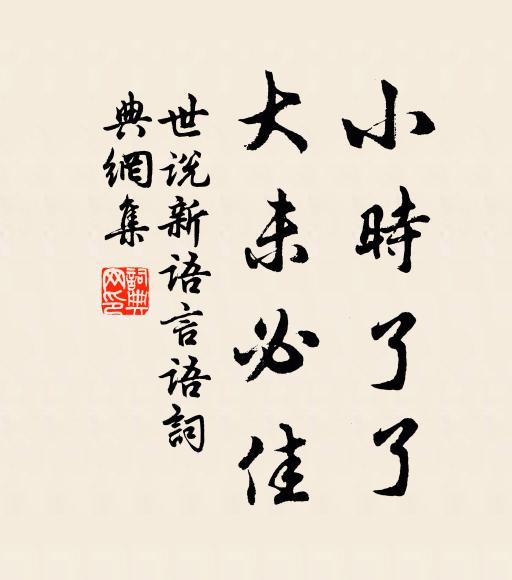 小時了了
大未必佳
世说新语言语詞
典網集
詞典網印